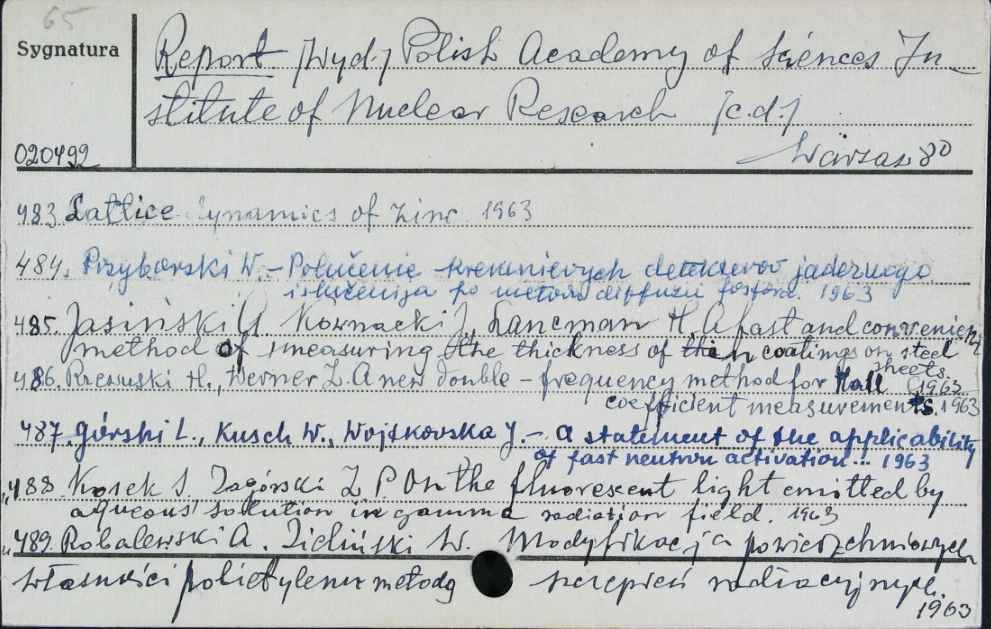 65
Sygnatura
Report /Wyd./ Polish Academy of Sciences In-
stitute of Nuclear Research /c.d./
020492
483. Lattice dynamics of Zinc 1963
484. Przyborski W. - Połučenie kremnievych detektorov jadernogo
izlučenija po metodu diffuzii fosfora. 1963
485. Jasiński A. Kownacki J., Lancman H. A fast and convenient
method of measuring the thickness of thin coatings on steel
sheets.
1963
486. Rzewuski H., Werner Z. A new double - frequency method for Hall
coefficient measurements. 1963
487. Górski L., Kusch W., Wojtkowska J. - A statement of the applicability
of fast neutron activation... 1963
„488. Kosek S., Zagórski Z. P. On the fluorescent light emitted by
aqueous sollution in gamma radiation field. 1963
„489. Robalewski A. Zieliński W. Modyfikacja powierzchniowych
własności polietylenu metodą szczepień radiacyjnych.
1963